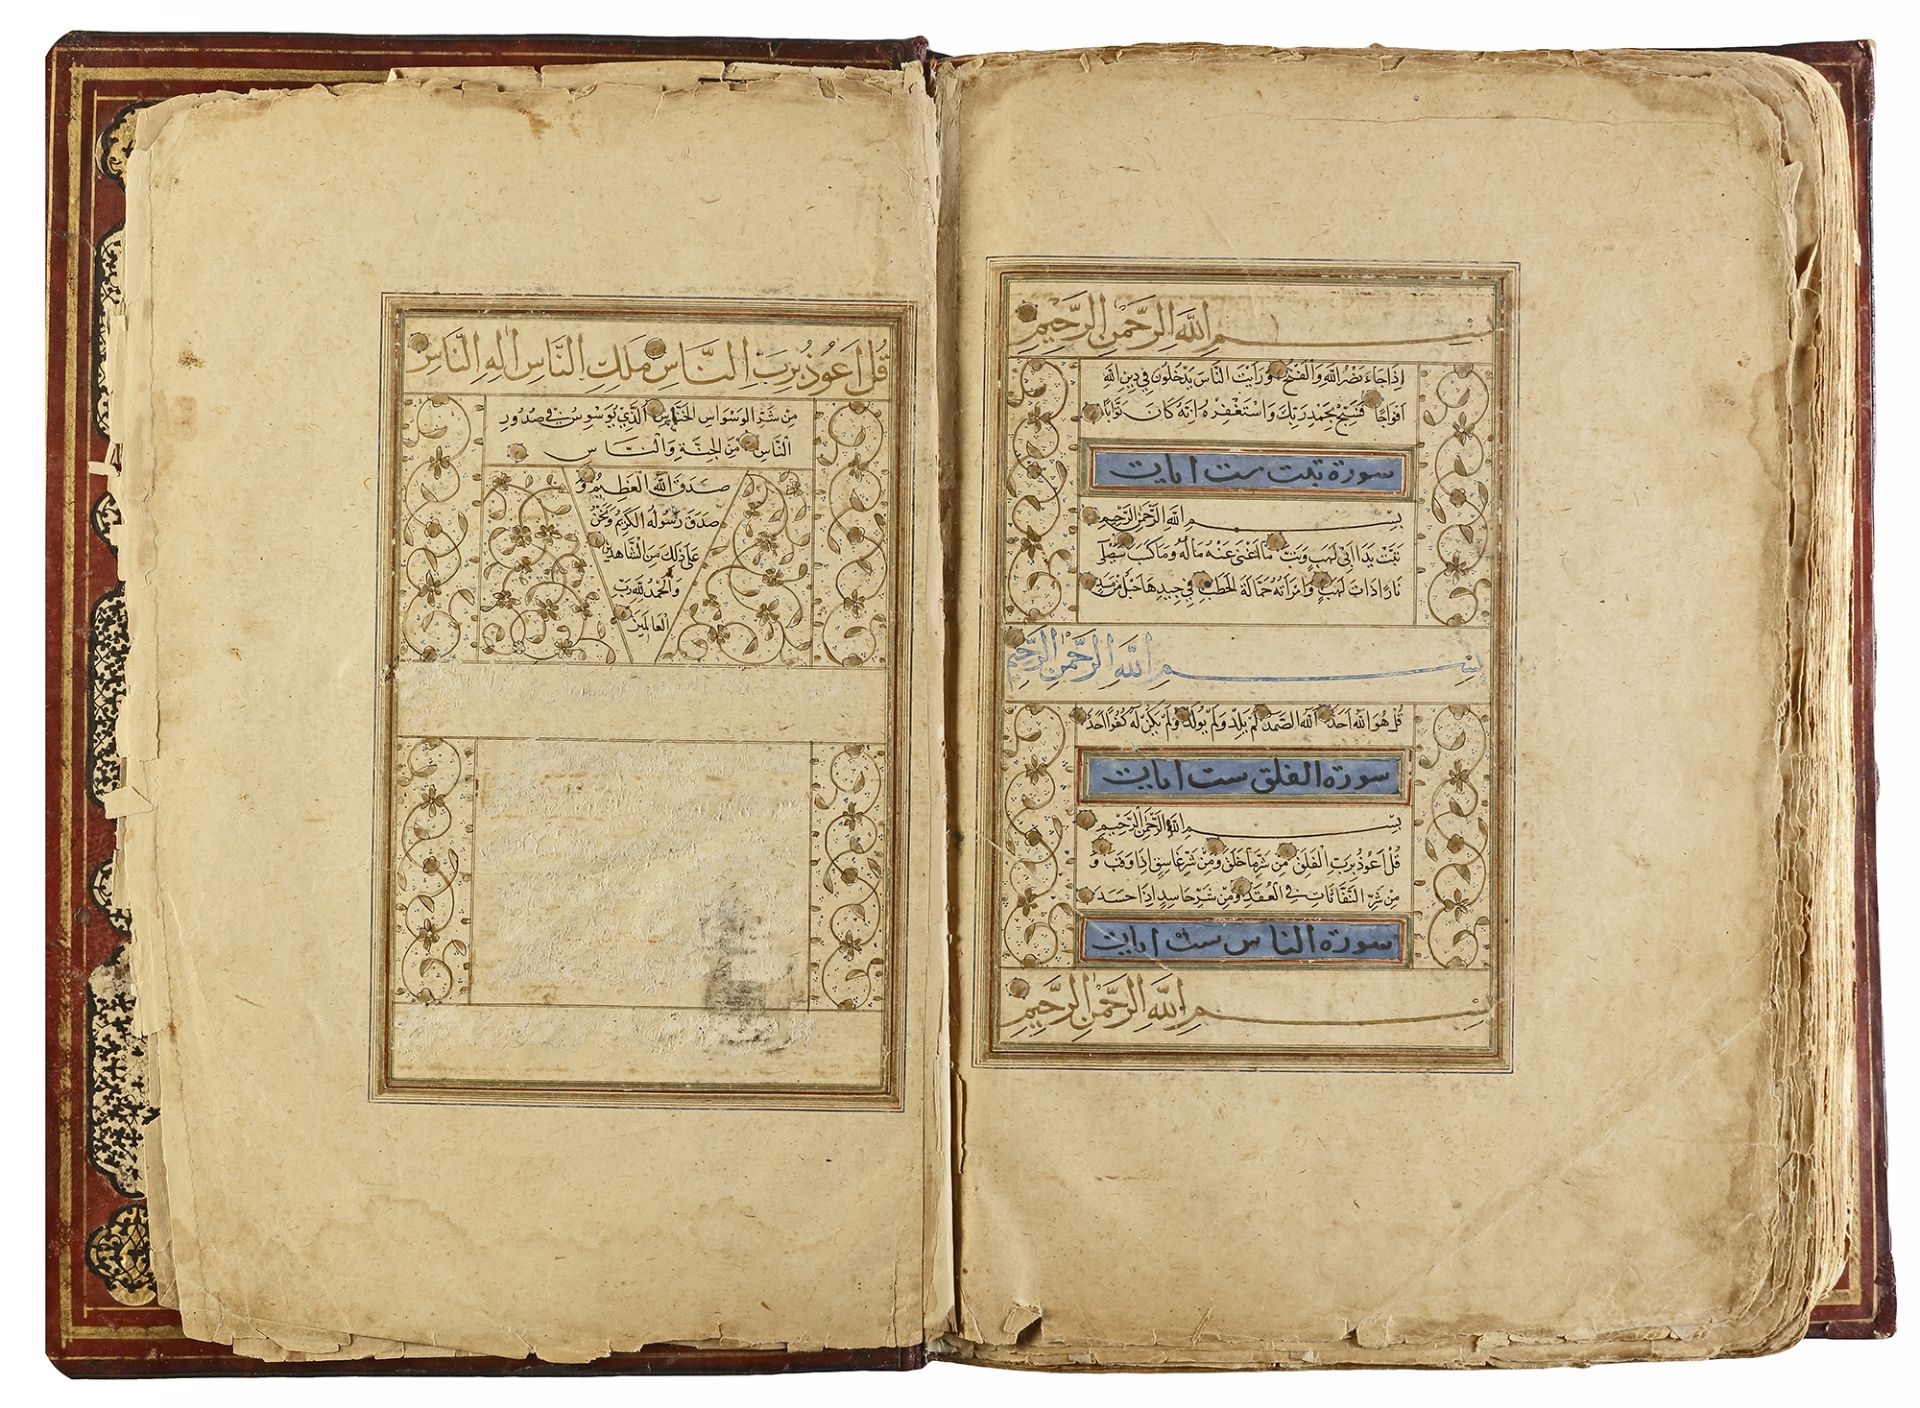 بِسْمِ اللَّهِ الرَّحْمَنِ الرَّحِيمِ
اِذَا جَاءَ نَصْرُ اللَّهِ وَالْفَتْحُ وَرَاَيْتَ النَّاسَ يَدْخُلُونَ فِي دِينِ اللَّهِ
اَفْوَاجًا فَسَبِّحْ بِحَمْدِ رَبِّكَ وَاسْتَغْفِرْهُ اِنَّهُ كَانَ تَوَّابًا
سورة تبت ست ايات
بِسْمِ اللَّهِ الرَّحْمَنِ الرَّحِيمِ
تَبَّتْ يَدَا اَبِي لَهَبٍ وَتَبَّ مَا اَغْنَى عَنْهُ مَالُهُ وَمَا كَسَبَ سَيَصْلَى
نَارًا ذَاتَ لَهَبٍ وَامْرَاَتُهُ حَمَّالَةَ الْحَطَبِ فِي جِيدِهَا حَبْلٌ مِنْ مَسَدٍ
بِسْمِ اللَّهِ الرَّحْمَنِ الرَّحِيمِ
قُلْ هُوَ اللَّهُ اَحَدٌ اَللَّهُ الصَّمَدُ لَمْ يَلِدْ وَلَمْ يُولَدْ وَلَمْ يَكُنْ لَهُ كُفُوًا اَحَدٌ
سورة الفلق ست ايات
بِسْمِ اللَّهِ الرَّحْمَنِ الرَّحِيمِ
قُلْ اَعُوذُ بِرَبِّ الْفَلَقِ مِنْ شَرِّ مَا خَلَقَ وَمِنْ شَرِّ غَاسِقٍ اِذَا وَقَبَ وَ
مِنْ شَرِّ النَّفَّاثَاتِ فِي الْعُقَدِ وَمِنْ شَرِّ حَاسِدٍ اِذَا حَسَدَ
سورة الناس ست ايات
بِسْمِ اللَّهِ الرَّحْمَنِ الرَّحِيمِ
قُلْ اَعُوذُ بِرَبِّ النَّاسِ مَلِكِ النَّاسِ اِلَهِ النَّاسِ
مِنْ شَرِّ الْوَسْوَاسِ الْخَنَّاسِ الَّذِي يُوَسْوِسُ فِي صُدُورِ
النَّاسِ مِنَ الْجِنَّةِ وَالنَّاسِ
صَدَقَ اللَّهُ الْعَظِيمُ وَ
صَدَقَ رَسُولُهُ الْكَرِيمُ وَنَحْنُ
عَلَى ذَلِكَ مِنَ الشَّاهِدِينَ
وَالْحَمْدُ لِلَّهِ رَبِّ
الْعَالَمِينَ